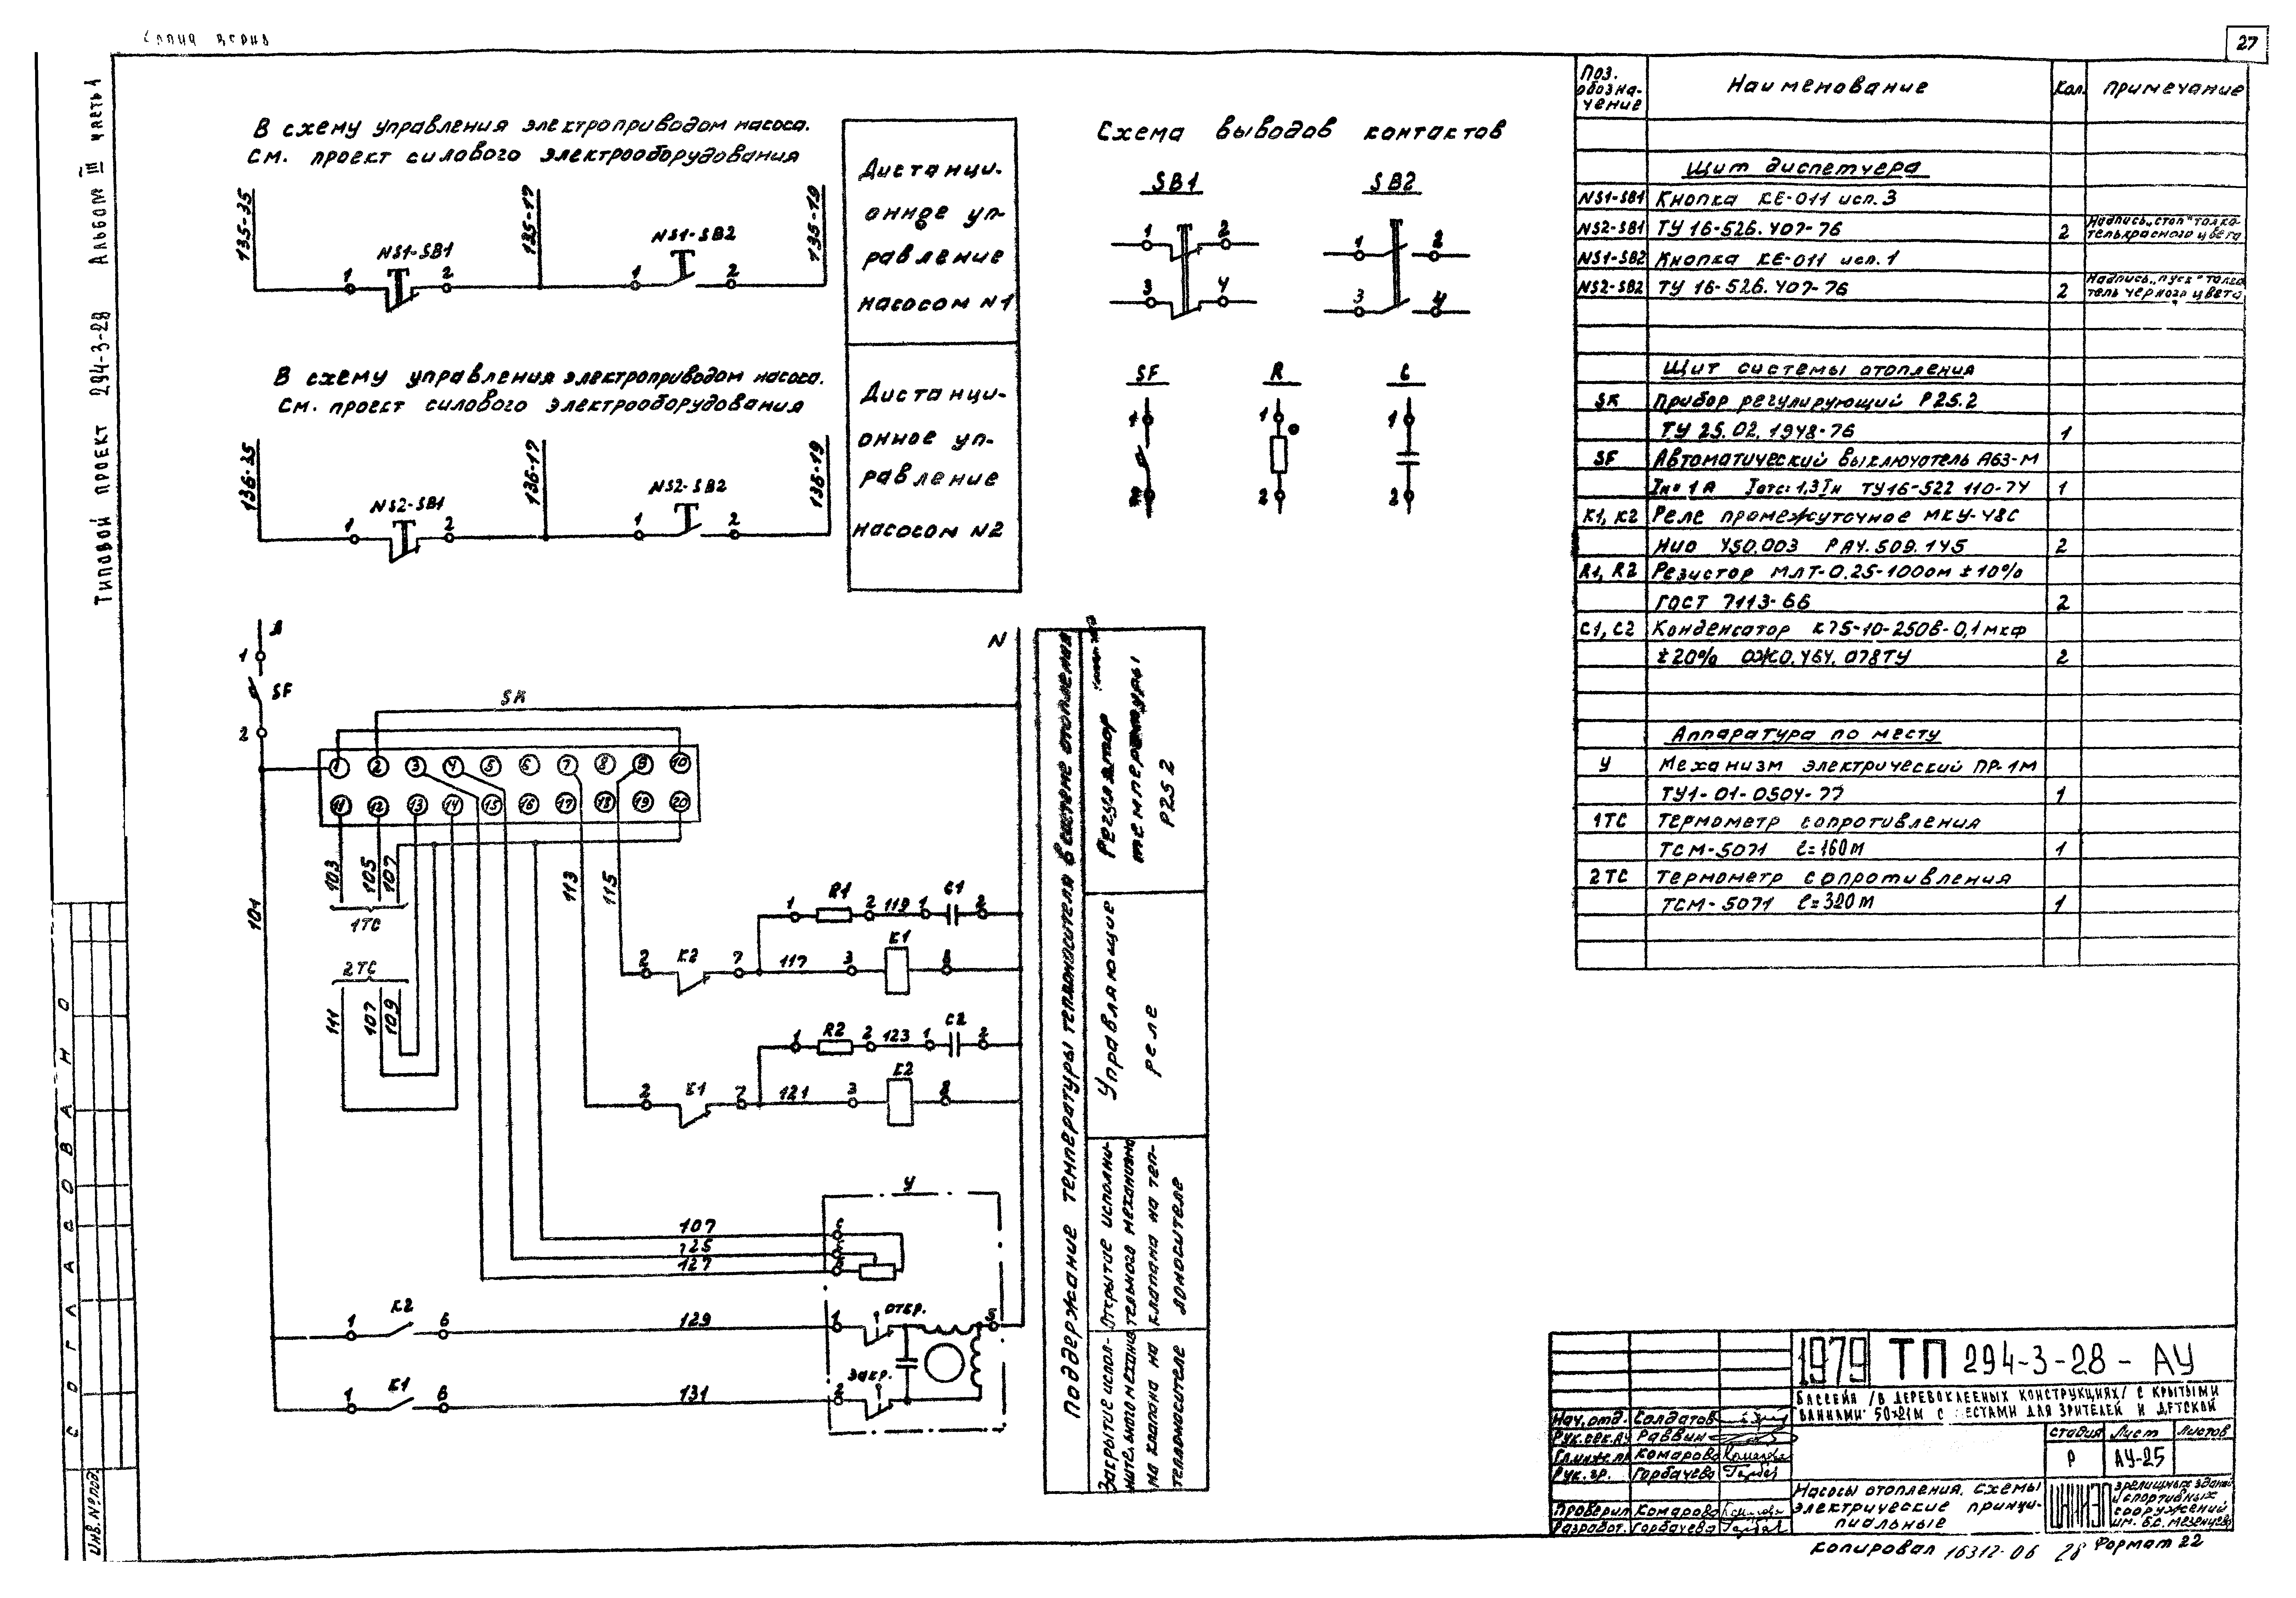 27
Типовой проект 294-3-28 Альбом III часть 1
В схему управления электроприводом насоса.
См. проект силового электрооборудования
135-35
NS1-SB1
1
2
135-17
NS1-SB2
1
2
135-19
Дистанци-
онное уп-
равление
насосом N1
В схему управления электроприводом насоса.
См. проект силового электрооборудования
136-35
NS2-SB1
1
2
136-17
NS2-SB2
1
2
136-19
Дистанци-
онное уп-
равление
насосом N2
Схема выводов контактов
SB1
1 2
3 4
SB2
1 2
3 4
SF
1
2
R
1
2
C
1
2
А
1
SF
2
SK
N
1 2 3 4 5 6 7 8 9 10
11 12 13 14 15 16 17 18 19 20
101
103
105
107
1ТС
2ТС
111
107
109
113
115
1 R1 2 119 1 C1 2
2 K2 7 117 3 K1 8
1 R2 2 123 1 C2 2
2 K1 7 121 3 K2 8
У
107
125
127
1 K2 6 129 1 откр.
1 K1 6 131 2 закр.
Поддержание температуры теплоносителя в системе отопления
Регулятор
температуры
Р25 2
Управляющие
реле
Открытие исполни-
тельного механизма
клапана на теп-
лоносителе
Закрытие испол-
нительного механиз
ма клапана на
теплоносителе
Поз.
обозна-
чение
Наименование
Кол.
Примечание
Щит диспетчера
NS1-SB1 Кнопка КЕ-011 исп. 3
NS2-SB1 ТУ 16-526.407-76 2 Надпись „стоп" толка-
тель красного цвета
NS1-SB2 Кнопка КЕ-011 исп. 1
NS2-SB2 ТУ 16-526.407-76 2 Надпись „пуск" толка
тель черного цвета
Щит системы отопления
SK Прибор регулирующий Р25.2
ТУ 25.02.1948-76 1
SF Автоматический выключатель А63-М
Iн=1А Iотс=1,3Iн ТУ16-522 110-74 1
К1, К2 Реле промежуточное МКУ-48С
450.003 РА4.509.145 2
R1, R2 Резистор МЛТ-0.25-100ом ±10%
ГОСТ 7113-66 2
С1, С2 Конденсатор К75-10-250в-0,1мкф
±20% ОЖ0.464.078ТУ 2
Аппаратура по месту
У Механизм электрический ПР-1М
ТУ1-01-0504-77 1
1ТС Термометр сопротивления
ТСМ-5071 l=160м 1
2ТС Термометр сопротивления
ТСМ-5071 l=320м 1
СОГЛАСОВАНО
Инв. № под.
1979 ТП 294-3-28-АУ
Бассейн /в деревоклееных конструкциях/ с крытыми
ваннами 50х21м с местами для зрителей и детской
Нач. отд. Солдатов
Рук. сек. АУ Раввин
Гл. инж. пр Комарова
Рук. гр. Горбачева
Проверил Комарова
Разработ. Горбачева
стадия Лист Листов
Р АУ-25
Насосы отопления. Схемы
электрические принци-
пиальные
ЦНИИЭП
зрелищных зданий
и спортивных
сооружений
им. Б.С. Мезенцева
Копировал 16312-06 28 Формат 22